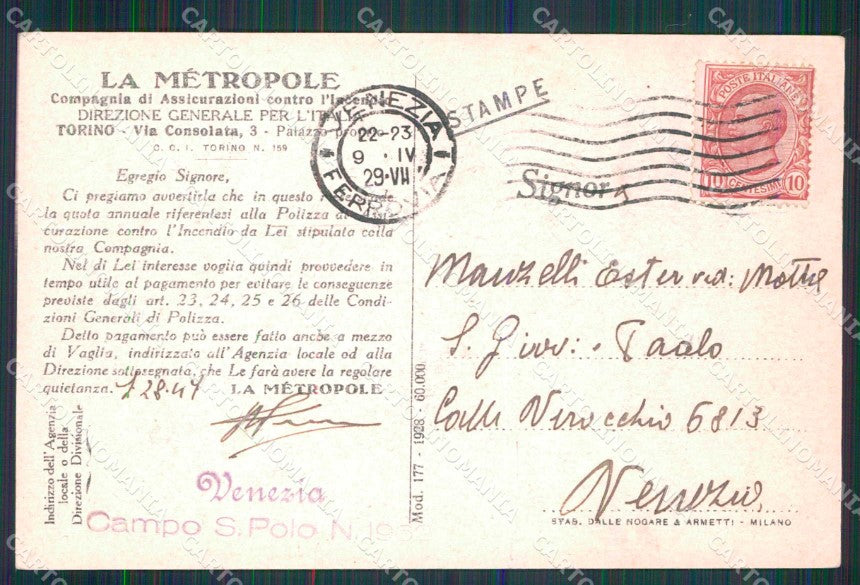 LA MÉTROPOLE
Compagnia di Assicurazioni contro l'Incendio
DIREZIONE GENERALE PER L'ITALIA
TORINO - Via Consolata, 3 - Palazzo
C. C. I. TORINO N. 159
Egregio Signore,
Ci pregiamo avvertirla che in questo
la quota annuale riferentesi alla Polizza di Assi-
curazione contro l'Incendio da Lei stipulata colla
nostra Compagnia.
Nel di Lei interesse voglia quindi provvedere in
tempo utile al pagamento per evitare le conseguenze
previste dagli art. 23, 24, 25 e 26 delle Condi-
zioni Generali di Polizza.
Detto pagamento può essere fatto anche a mezzo
di Vaglia, indirizzato all'Agenzia locale od alla
Direzione sottosegnata, che Le farà avere la regolare
quietanza. £ 28.47 LA MÉTROPOLE
Indirizzo dell'Agenzia
locale o della
Direzione Divisionale
Venezia
Campo S. Polo N.
Mod. 177 - 1928 - 60.000
VENEZIA
22-23
9 · IV
29·VII
FERROVIA
STAMPE
POSTE ITALIANE
10 CENTESIMI 10
Signor
Manzelli Ester ved:
S. Giov: Paolo
Calle Verocchio 6813
Venezia
STAB. DALLE NOGARE & ARMETTI - MILANO
CARTOLINOMANIA